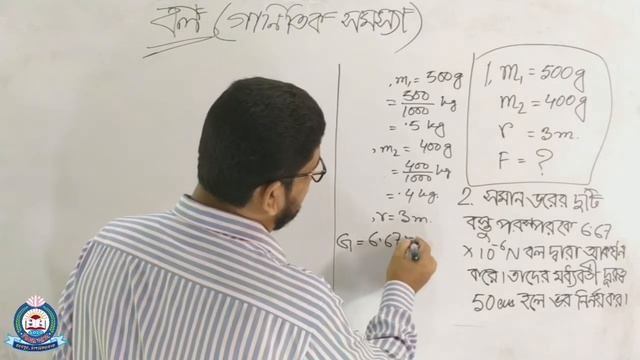 বল (গানিতিক সমস্যা)
, m₁ = 500g
= 500/1000 kg
= .5 kg
, m₂ = 400g
= 400/1000 kg
= .4 kg.
, r = 3 m.
G = 6.67
1. m₁ = 500g
m₂ = 400g
r = 3m.
F = ?
2. সমান ভরের দুটি
বস্তু পরস্পরকে 6.67
× 10⁻⁶N বল দ্বারা আকর্ষন
করে। তাদের মধ্যবর্তী দুরত্ব
50cm হলে ভর নির্নয় কর।